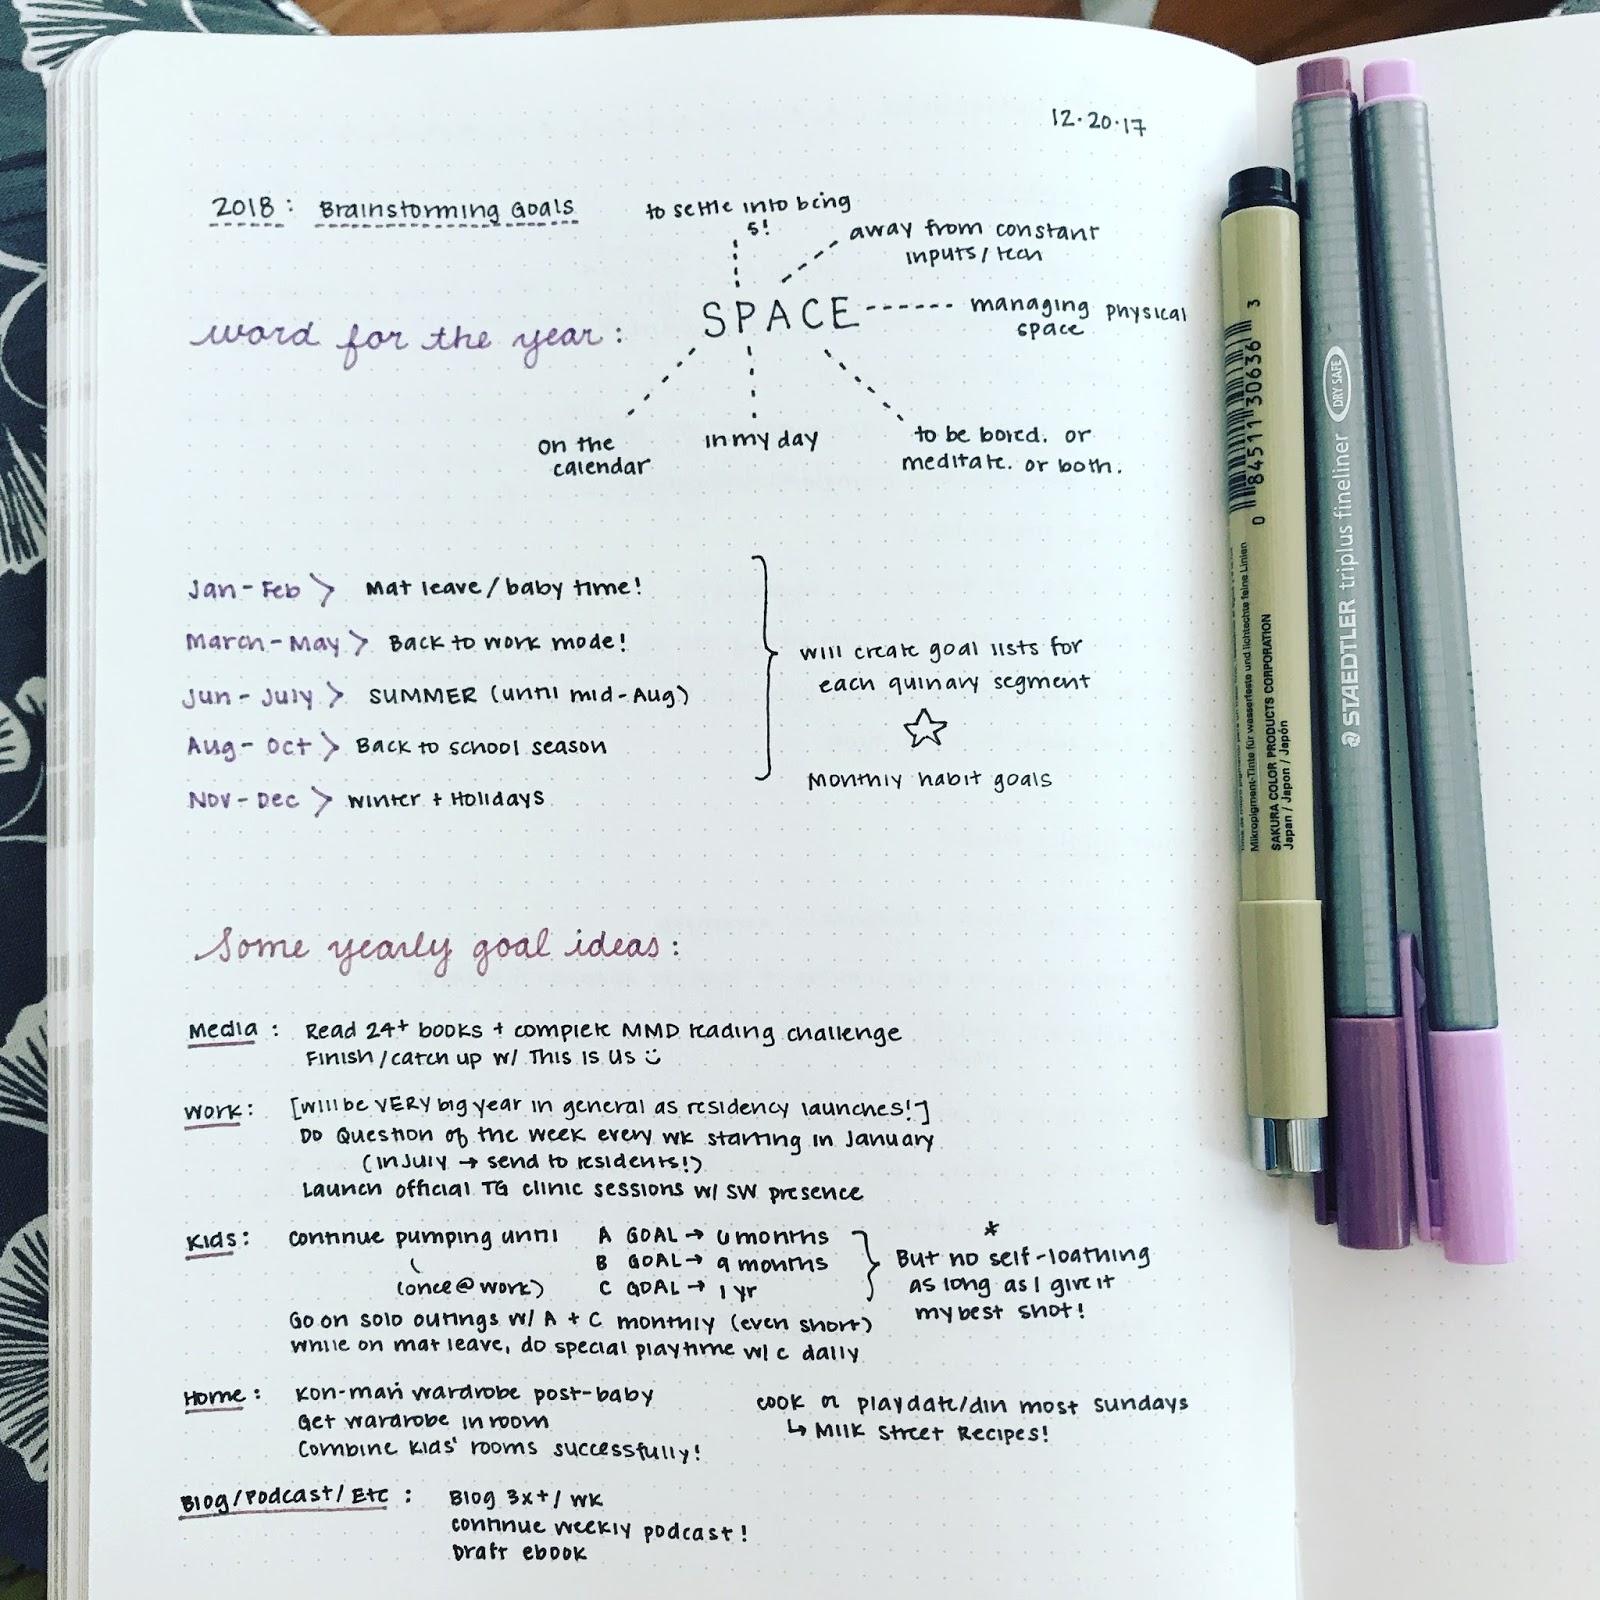 12.20.17
2018: Brainstorming Goals
to settle into being
5!
away from constant
inputs/tech
word for the year:
SPACE
managing physical
space
on the
calendar
in my day
to be bored. or
meditate. or both.
Jan-Feb > Mat leave/baby time!
March-May > Back to work mode!
Jun-July > SUMMER (until mid-Aug)
Aug-Oct > Back to school season
Nov-Dec > winter + Holidays
will create goal lists for
each quinary segment
☆
Monthly habit goals
Some yearly goal ideas:
Media: Read 24+ books + complete MMD reading challenge
Finish/catch up w/ This Is Us
Work: [will be VERY big year in general as residency launches!]
Do Question of the week every wk starting in January
(in July → send to residents!)
Launch official TG clinic sessions w/ SW presence
Kids: continue pumping until
(once@work)
A GOAL → 6 months
B GOAL → 9 months
C GOAL → 1 yr
*
But no self-loathing
as long as I give it
my best shot!
Go on solo outings w/ A + C monthly (even short)
While on mat leave, do special playtime w/ C daily
Home: Kon-mari wardrobe post-baby
Get wardrobe in room
Combine kids' rooms successfully!
cook or playdate/din most sundays
↳ Milk Street Recipes!
Blog/Podcast/Etc: Blog 3x+/wk
continue weekly podcast!
Draft ebook
0 84511 30636 3
Mikropigment-Tinte für wasserfeste und lichtechte feine Linien
SAKURA COLOR PRODUCTS CORPORATION
Japan / Japon / Japón
STAEDTLER triplus fineliner
DRY SAFE